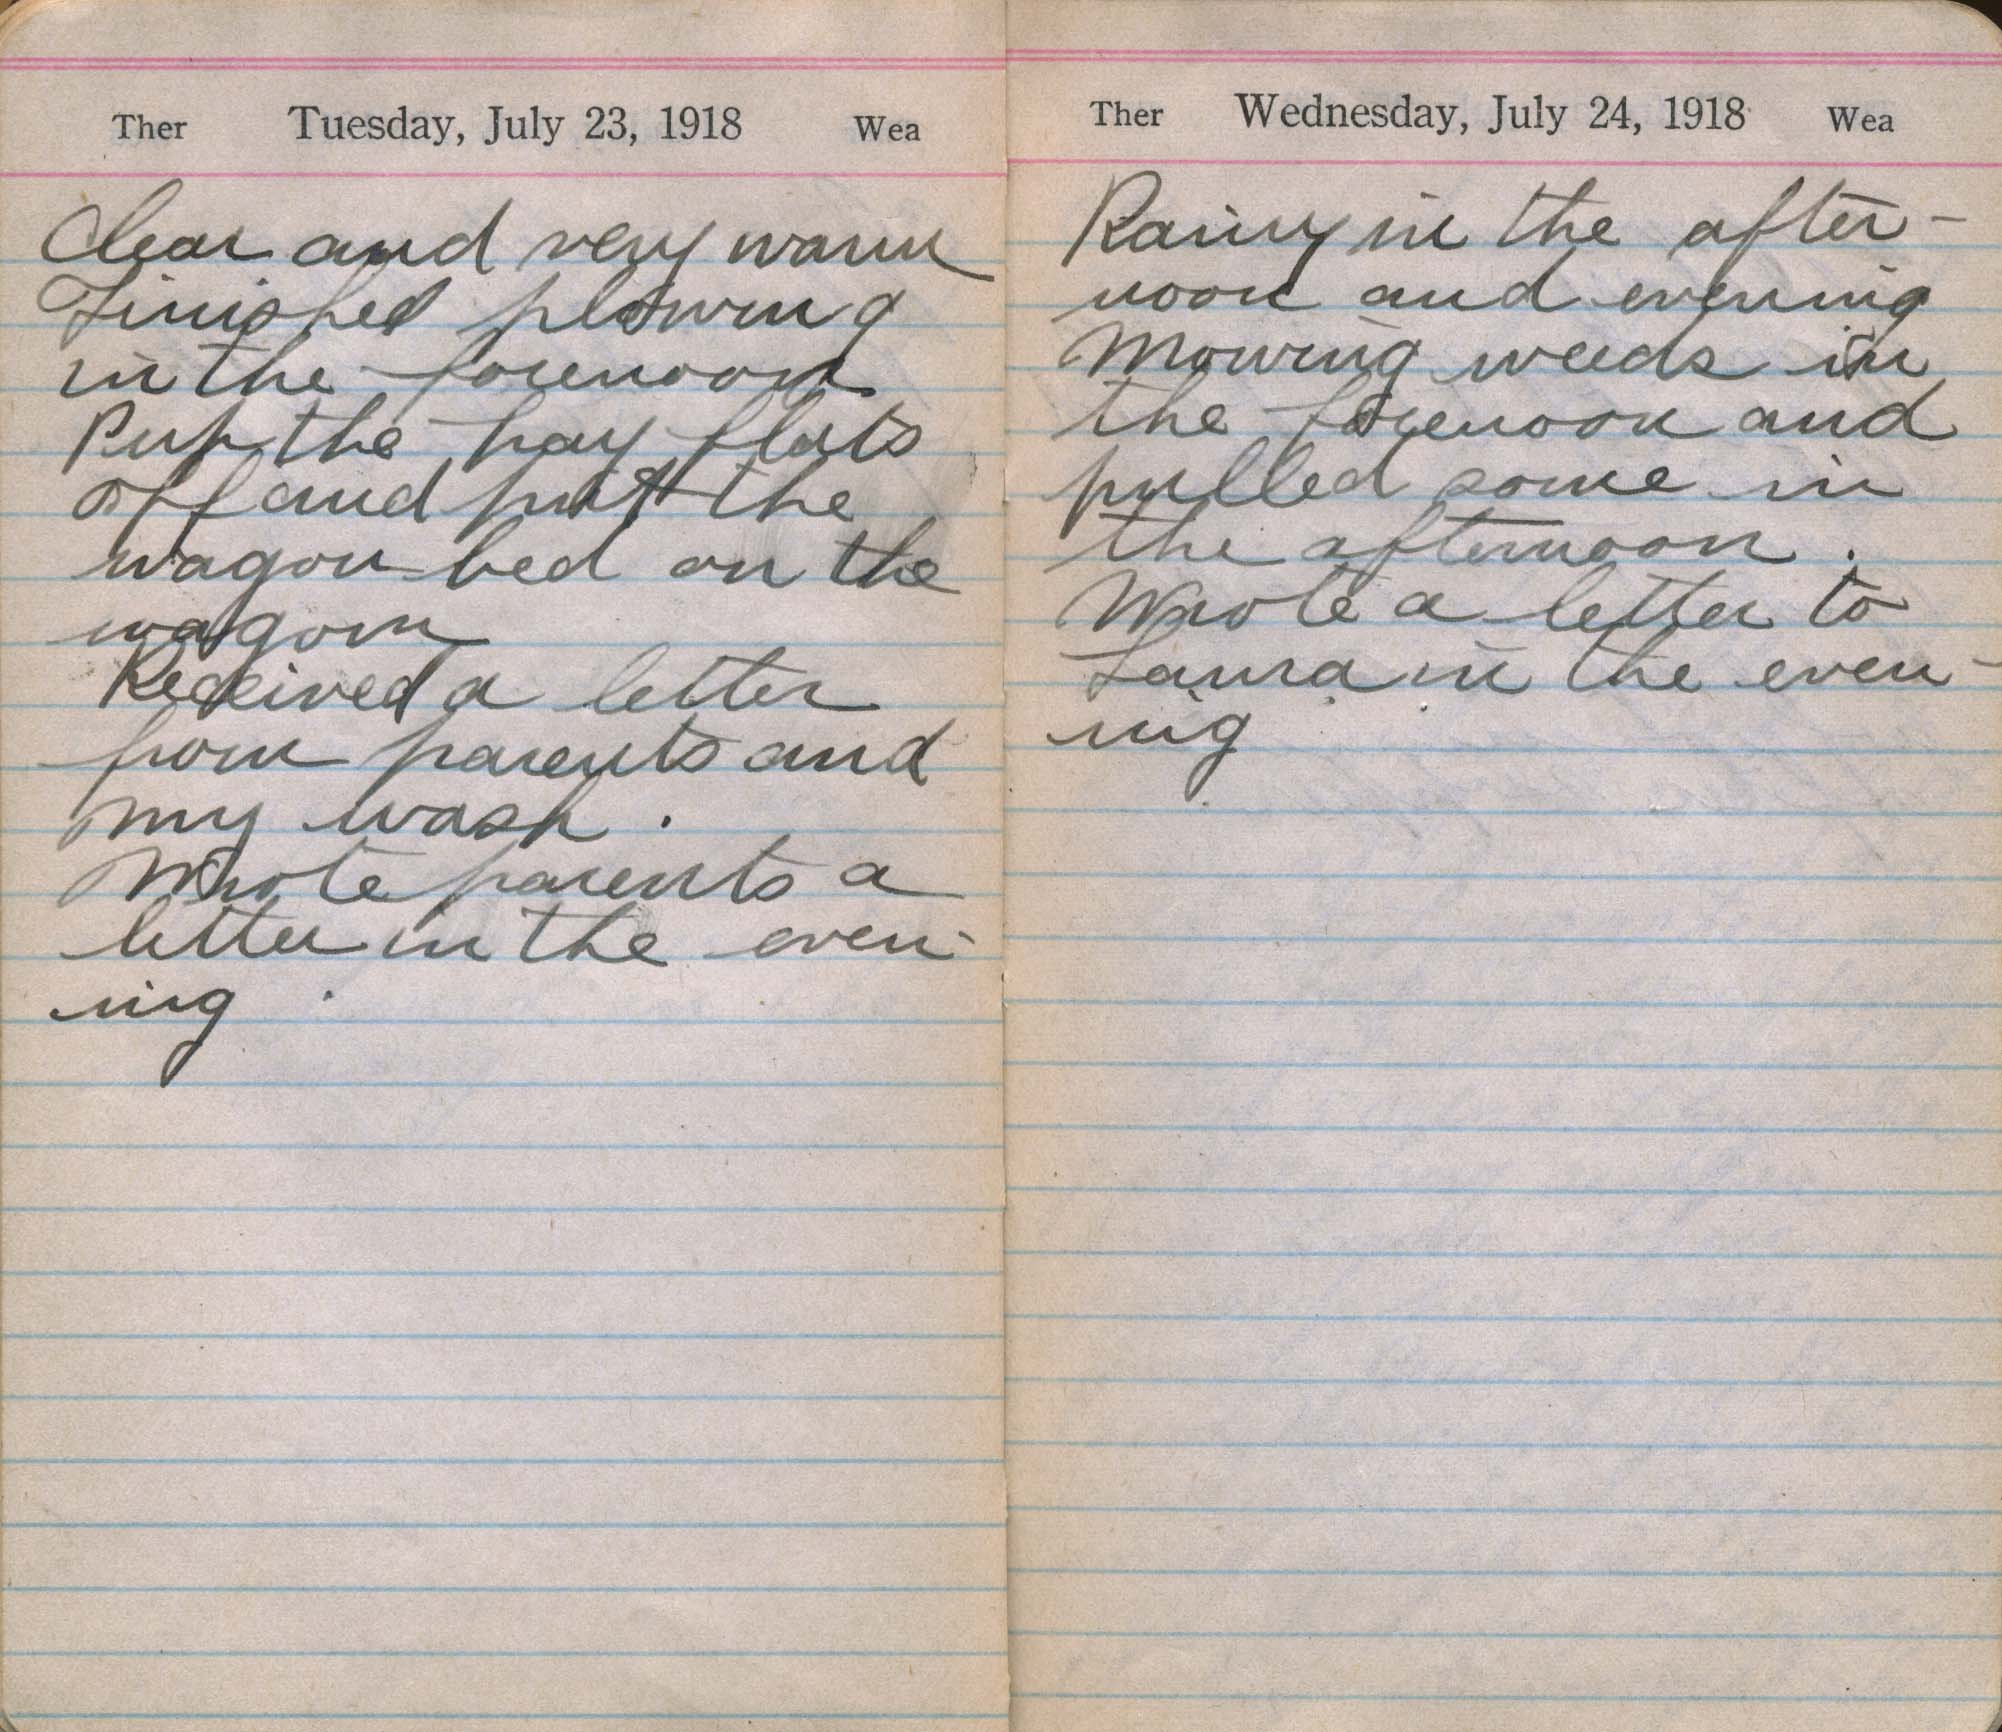 Ther Tuesday, July 23, 1918 Wea
Clear and very warm
Finished plowing
in the forenoon
Put the hay flats
off and put the
wagon bed on the
wagon
Received a letter
from parents and
my wash.
Wrote parents a
letter in the even-
ing.
Ther Wednesday, July 24, 1918 Wea
Rainy in the after-
noon and evening
Mowing weeds in
the forenoon and
pulled some in
the afternoon.
Wrote a letter to
Laura in the even-
ing